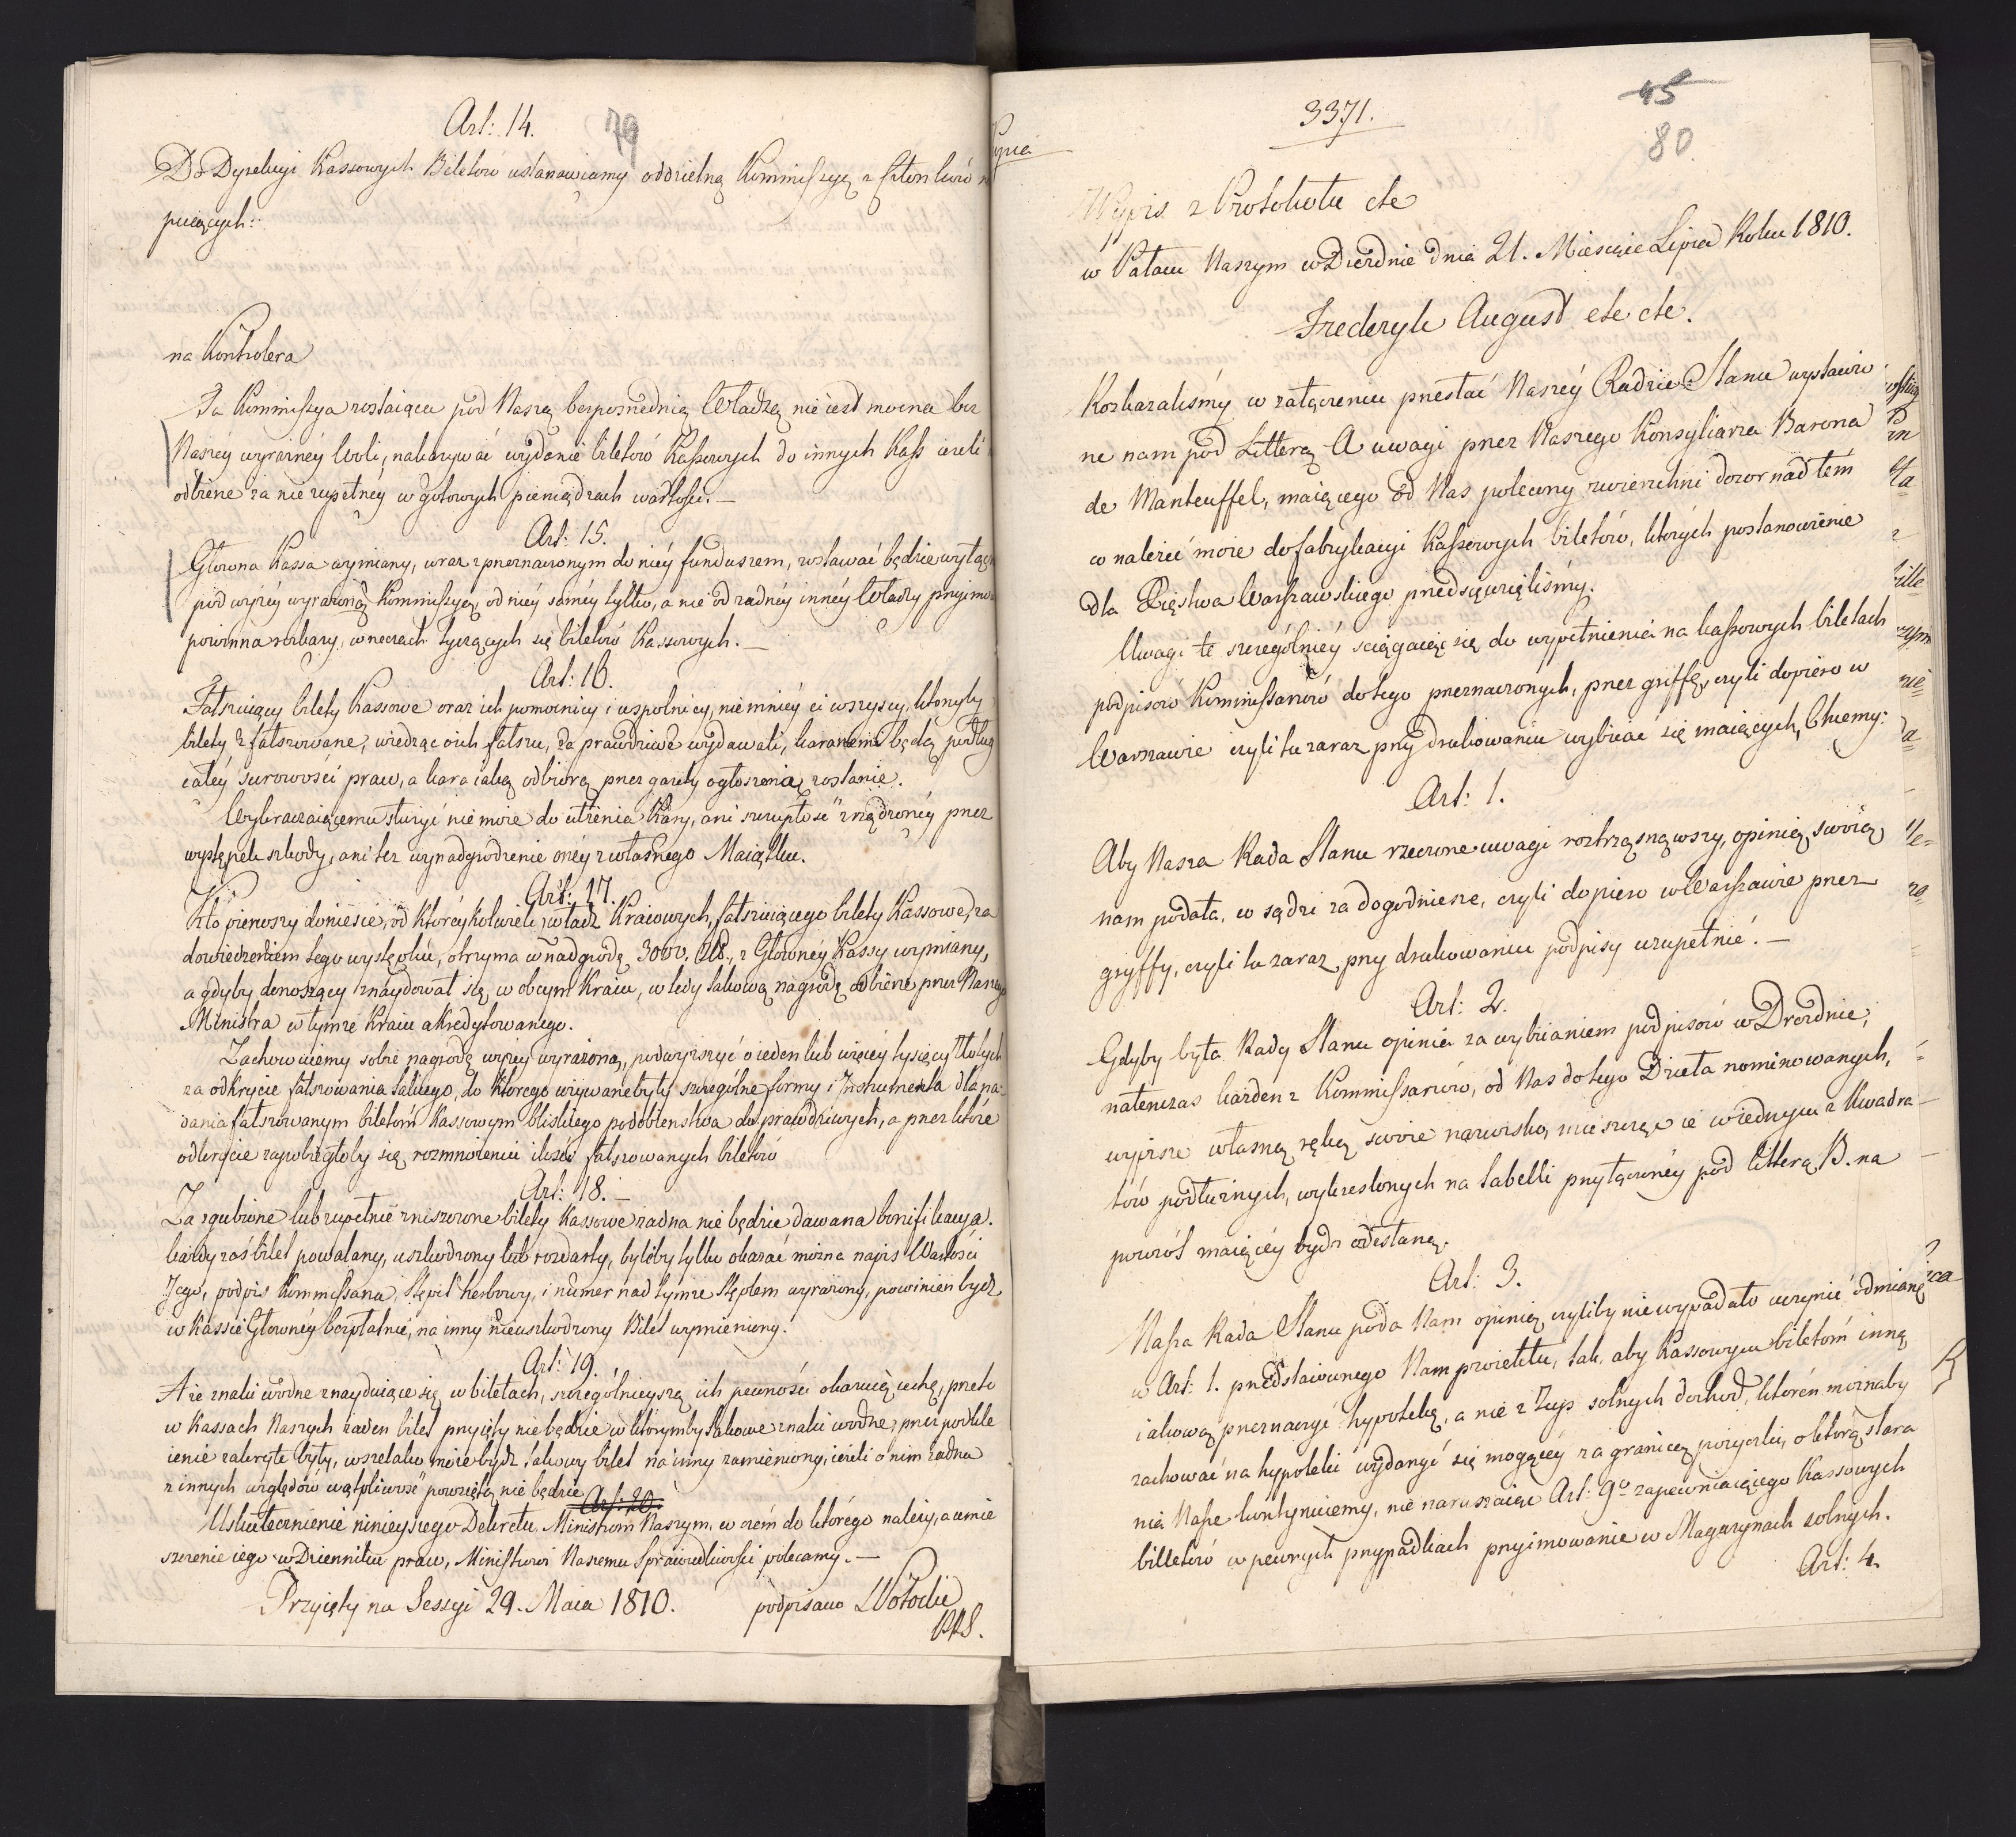 Art: 14.
79
Do Dyrekcyi Kassowych Biletów ustanawiamy oddzielną Kommissyą z Członków
puiących:
na Kontrolera
Ta Kommissya zostaiąca pod Naszą bezposrednią Władzą nie iest mocna bez
Naszéy wyraźnéy Woli, nakazywać wydanie biletów Kassowych do innych Kass ieżeli
odbiene za nie zupełnéy w gotowych pieniądzach wartości. —
Art: 15.
Głowna Kassa wymiany, wraz z przeznaczonym do niéy funduszem, zostawać będzie wyłącz
pod wyżéy wyrażoną Kommissyą, od niéy saméy tylko, a nie od żadnéy innéy Władzy przyimo
powinna rozkazy, w rzeczach tyczących się biletów Kassowych. —
Art: 16.
Fałszuiący bilety Kassowe oraz ich pomocnicy i wspolnicy, niemniéy ci wszyscy, którzyby
bilety sfałszowane, wiedząc o ich fałszu, za prawdziwe wydawali, karanemi będą podług
całéy surowości praw, a kara iaką odbiorą przez gazety ogłoszoną zostanie.
Wykraczaiącemu służyć nie może do ulżenia Kary, ani szczupłość zrządzonéy przez
występek szkody, ani też wynadgrodzenie onéy z własnego Maiątku.
Art: 17.
Kto pierwszy doniesie, do któréykolwiek władz Kraiowych, fałszuiącego bilety Kassowe, za
dowiedzeniem tego występku, otrzyma w nadgrodę 3000, Złł., z Głownéy Kassy wymiany,
a gdyby donoszący znaydował się w obcym Kraiu, w tedy takową nagrodę odbierze przez Naszego
Ministra w tymże Kraiu akredytowanego.
Zachowuiemy sobie nagrodę wyżéy wyrażoną, podwyższyć o ieden lub więcéy tysięcy Złotych
za odkrycie fałszowania takiego, do którego używane były szczególne formy i Instrumenta dla na-
dania fałszowanym biletóm Kassowym bliskiego podobieństwa do prawdziwych, a przez które
odkrycie zapobiegłoby się rozmnożeniu ilości fałszowanych biletów
Art: 18. —
Za zgubione lub zupełnie zniszczone bilety Kassowe żadna nie będzie dawana bonifikacya.
każdy zaś bilet powalany, uszkodzony lub rozdarty, byleby tylko okazać można napis Wartości
Jego, podpis Kommissarza, Stępel herbowy, i numer nad tymże Stęplem wyrażony, powinien bydź
w Kassie Głownéy bezpłatnie, na inny nieuszkodzony Bilet wymieniony.
Art: 19.
A że znaki wodne znayduiące się w biletach, szczególnieyszą ich pewności okazuią cechę, przeto
w Kassach Naszych żaden bilet przyięty nie będzie w którymby takowe znaki wodne, przez podkle
ienie zakryte były, wszelako może bydź takowy bilet na inny zamieniony, ieżeli o nim żadna
z innych względów wątpliwość powziętą nie będzie
Art: 20.
Uskutecznienie ninieyszego Dekretu, Ministrom Naszym, w czém do którégo należy, a umie
szczenie iego w Dzienniku praw, Ministrowi Naszemu Sprawiedliwości polecamy. —
Przyięty na Sessyi 29. Maia 1810. podpisano
3371.
45
80
Wypis z Protokołu etc
w Pałacu Naszym w Dreźnie dnia 21. Miesiąca Lipca Roku 1810.
Frederyk August etc etc.
Rozkazaliśmy w załączeniu przesłać Naszéy Radzie Stanu wystawio
ne nam pod Litterą A uwagi przez Naszego Konsyliarza Barona
de Manteuffel, maiącego od Nas polecony zwierzchni dozor nad tém
co należeć może do fabrykacyi Kassowych biletów, których postanowienie
dla Xięstwa Warszawskiego przedsięwzięliśmy.
Uwagi te szczególniéy sciągaią się do wypełnienia na kassowych biletach
podpisów Kommissarzów do tego przeznaczonych, przez gryffę, czyli dopiero w
Warszawie czyli tu zaraz przy drukowaniu wybiiać się maiących, Chcemy:
Art: 1.
Aby Nasza Rada Stanu rzeczone uwagi roztrząsnąwszy, opinią swoią
nam podała, co sądzi za dogodniesze, czyli dopiero w Warszawie przez
gryffy, czyli tu zaraz przy drukowaniu podpisy uzupełnić. —
Art: 2.
Gdyby była Rady Stanu opinia za wybiianiem podpisów w Dreźnie,
natenczas każden z Kommissarzów, od Nas do tego Dzieła nominowanych,
wypisze własną ręką swoie nazwisko, mieszcząc ie w iednym z Kwadra-
tów podłużnych, wykreslonych na tabelli przyłączonéy pod litterą B. na
powrót maiącéy bydź odesłaną.
Art: 3.
Nasza Rada Stanu poda Nam opinią czyliby nie wypadało uczynić odmianę
w Art: 1. przedstawionego Nam proiektu, tak, aby Kassowym biletóm inną
iakową przeznaczyć hypotekę, a nie z Żup solnych dochod, którén możnaby
zachować na hypotekę wydanyć się mogącéy za granicą pożyczki, o którą stara
nia Nasze kontynuiemy, nie naruszaiąc Art: 9º zapewniaiącego Kassowych
billetów w pewnych przypadkach przyimowanie w Magazynach solnych.
Art: 4.